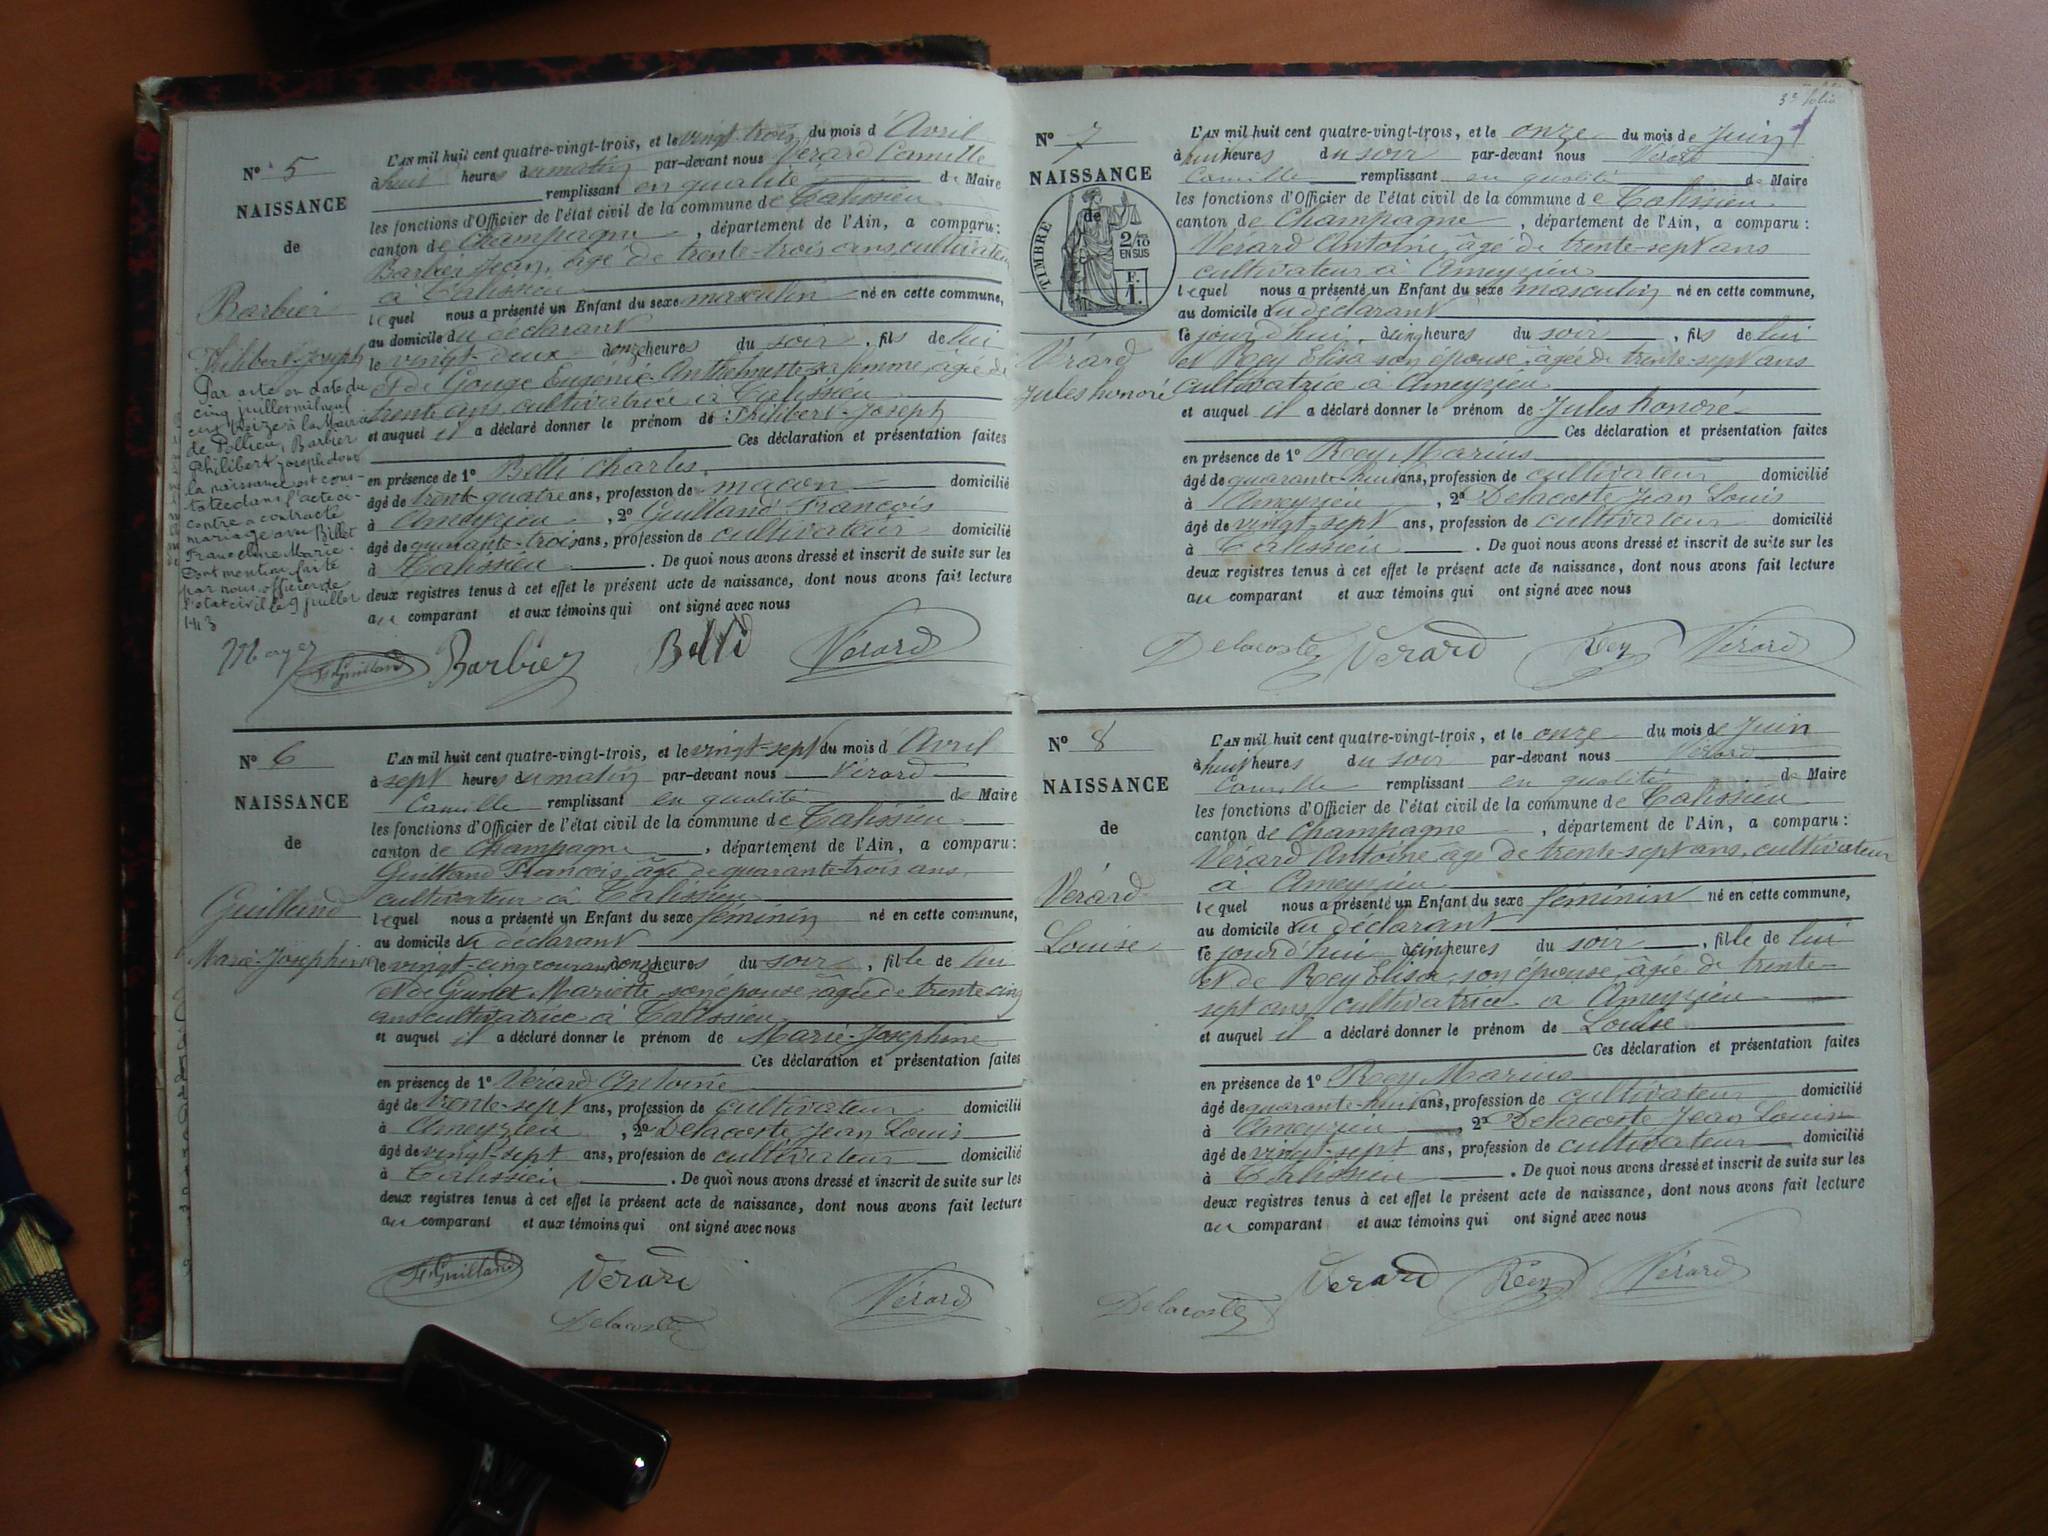 N° 5
NAISSANCE
de
Barbier
Philibert-Joseph
Par acte en date du
cinq juillet mil neuf
cent treize à la Mairie
de Pollieu, Barbier
Philibert Joseph dont
la naissance est cons-
tatée dans l'acte ci-
contre a contracté
mariage avec Billet
Francline Marie.
Dont mention faite
par nous officier de
l'état civil le 9 juillet
1913
Mayer
L'AN mil huit cent quatre-vingt-trois, et le vingt-trois du mois d'Avril
à huit heures du matin par-devant nous Vérard Camille
remplissant en qualité de Maire
les fonctions d'Officier de l'état civil de la commune de Talissieu
canton de Champagne, département de l'Ain, a comparu:
Barbier Jean, âgé de trente-trois ans, cultivateur
à Talissieu
lequel nous a présenté un Enfant du sexe masculin né en cette commune,
au domicile du déclarant
le vingt-deux à onze heures du soir, fils de lui
et de Gouge Eugénie Anthelmette sa femme, âgée de
trente ans, cultivatrice à Talissieu
et auquel il a déclaré donner le prénom de Philibert-Joseph
Ces déclaration et présentation faites
en présence de 1° Belli Charles,
âgé de trente-quatre ans, profession de maçon domicilié
à Ameyzieu, 2° Guilland François
âgé de quarante-trois ans, profession de cultivateur domicilié
à Talissieu. De quoi nous avons dressé et inscrit de suite sur les
deux registres tenus à cet effet le présent acte de naissance, dont nous avons fait lecture
au comparant et aux témoins qui ont signé avec nous
F. Guilland Barbier Belli Vérard
N° 6
NAISSANCE
de
Guilland
Marie-Joséphine
L'AN mil huit cent quatre-vingt-trois, et le vingt-sept du mois d'Avril
à sept heures du matin par-devant nous Vérard
Camille remplissant en qualité de Maire
les fonctions d'Officier de l'état civil de la commune de Talissieu
canton de Champagne, département de l'Ain, a comparu:
Guilland François, âgé de quarante-trois ans,
cultivateur à Talissieu
lequel nous a présenté un Enfant du sexe féminin né en cette commune,
au domicile du déclarant
le vingt-cinq courant à onze heures du soir, fille de lui
et de Mariette son épouse, âgée de trente cinq
ans cultivatrice à Talissieu
et auquel il a déclaré donner le prénom de Marie-Joséphine
Ces déclaration et présentation faites
en présence de 1° Vérard Antoine
âgé de trente-sept ans, profession de cultivateur domicilié
à Ameyzieu, 2° Delacoste Jean Louis
âgé de vingt-sept ans, profession de cultivateur domicilié
à Talissieu. De quoi nous avons dressé et inscrit de suite sur les
deux registres tenus à cet effet le présent acte de naissance, dont nous avons fait lecture
au comparant et aux témoins qui ont signé avec nous
F. Guilland Verard Vérard
Delacoste
3e folio
N° 7
NAISSANCE
de
TIMBRE
2/10
EN SUS
F.
1.
Vérard
Jules honoré
L'AN mil huit cent quatre-vingt-trois, et le onze du mois de Juin
à huit heures du soir par-devant nous Vérard
Camille remplissant en qualité de Maire
les fonctions d'Officier de l'état civil de la commune de Talissieu
canton de Champagne, département de l'Ain, a comparu:
Vérard Antoine, âgé de trente-sept ans
cultivateur à Ameyzieu
lequel nous a présenté un Enfant du sexe masculin né en cette commune,
au domicile du déclarant
le jourd'hui, à cinq heures du soir, fils de lui
et Rey Elisa son épouse, âgée de trente-sept ans
cultivatrice à Ameyzieu
et auquel il a déclaré donner le prénom de Jules honoré
Ces déclaration et présentation faites
en présence de 1° Rey Marius
âgé de quarante-huit ans, profession de cultivateur domicilié
à Ameyzieu, 2° Delacoste Jean Louis
âgé de vingt-sept ans, profession de cultivateur domicilié
à Talissieu. De quoi nous avons dressé et inscrit de suite sur les
deux registres tenus à cet effet le présent acte de naissance, dont nous avons fait lecture
au comparant et aux témoins qui ont signé avec nous
Delacoste Verard Rey Vérard
N° 8
NAISSANCE
de
Vérard
Louise
L'AN mil huit cent quatre-vingt-trois, et le onze du mois de Juin
à huit heures du soir par-devant nous Vérard
Camille remplissant en qualité de Maire
les fonctions d'Officier de l'état civil de la commune de Talissieu
canton de Champagne, département de l'Ain, a comparu:
Vérard Antoine âgé de trente-sept ans, cultivateur
à Ameyzieu
lequel nous a présenté un Enfant du sexe féminin né en cette commune,
au domicile du déclarant
le jourd'hui à cinq heures du soir, fille de lui
et de Rey Elisa, son épouse, âgée de trente-
sept ans, cultivatrice à Ameyzieu
et auquel il a déclaré donner le prénom de Louise
Ces déclaration et présentation faites
en présence de 1° Rey Marius
âgé de quarante-huit ans, profession de cultivateur domicilié
à Ameyzieu, 2° Delacoste Jean Louis
âgé de vingt-sept ans, profession de cultivateur domicilié
à Talissieu. De quoi nous avons dressé et inscrit de suite sur les
deux registres tenus à cet effet le présent acte de naissance, dont nous avons fait lecture
au comparant et aux témoins qui ont signé avec nous
Delacoste Verard Rey Vérard